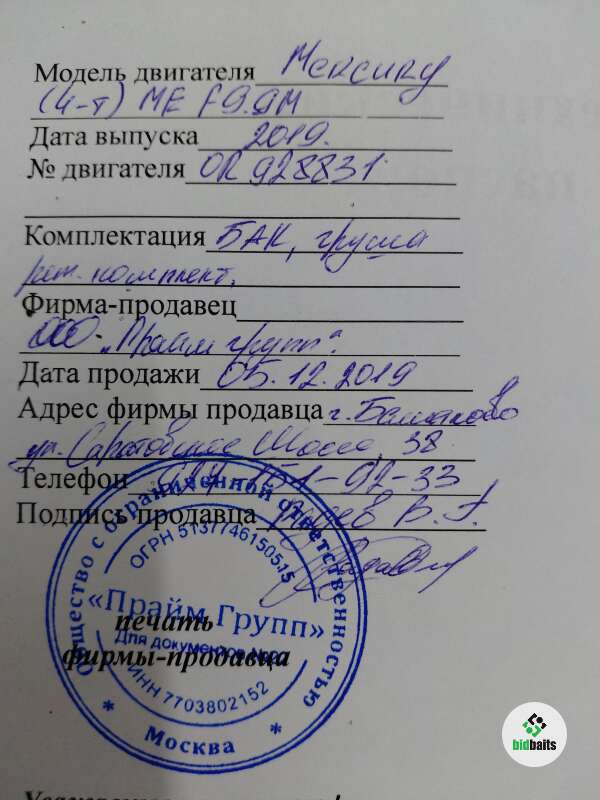 Модель двигателя Mercury
(4-т) ME F9.9M
Дата выпуска 2019.
№ двигателя OR928831
Комплектация БАК, груша
рем. комплект.
Фирма-продавец
ООО „Прайм групп".
Дата продажи 05.12.2019
Адрес фирмы продавца г. Балаково
ул. Саратовское Шоссе, 38
Телефон 51-92-33
Подпись продавца В. Г.
Общество с ограниченной ответственностью
ОГРН 5137746150515
«Прайм Групп»
печать
Для документов
фирмы-продавца
ИНН 7703802152
* Москва *
bidbaits